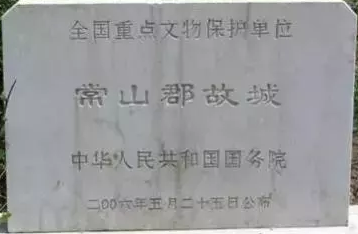 全国重点文物保护单位
常山郡故城
中华人民共和国国务院
二00六年五月二十五日公布